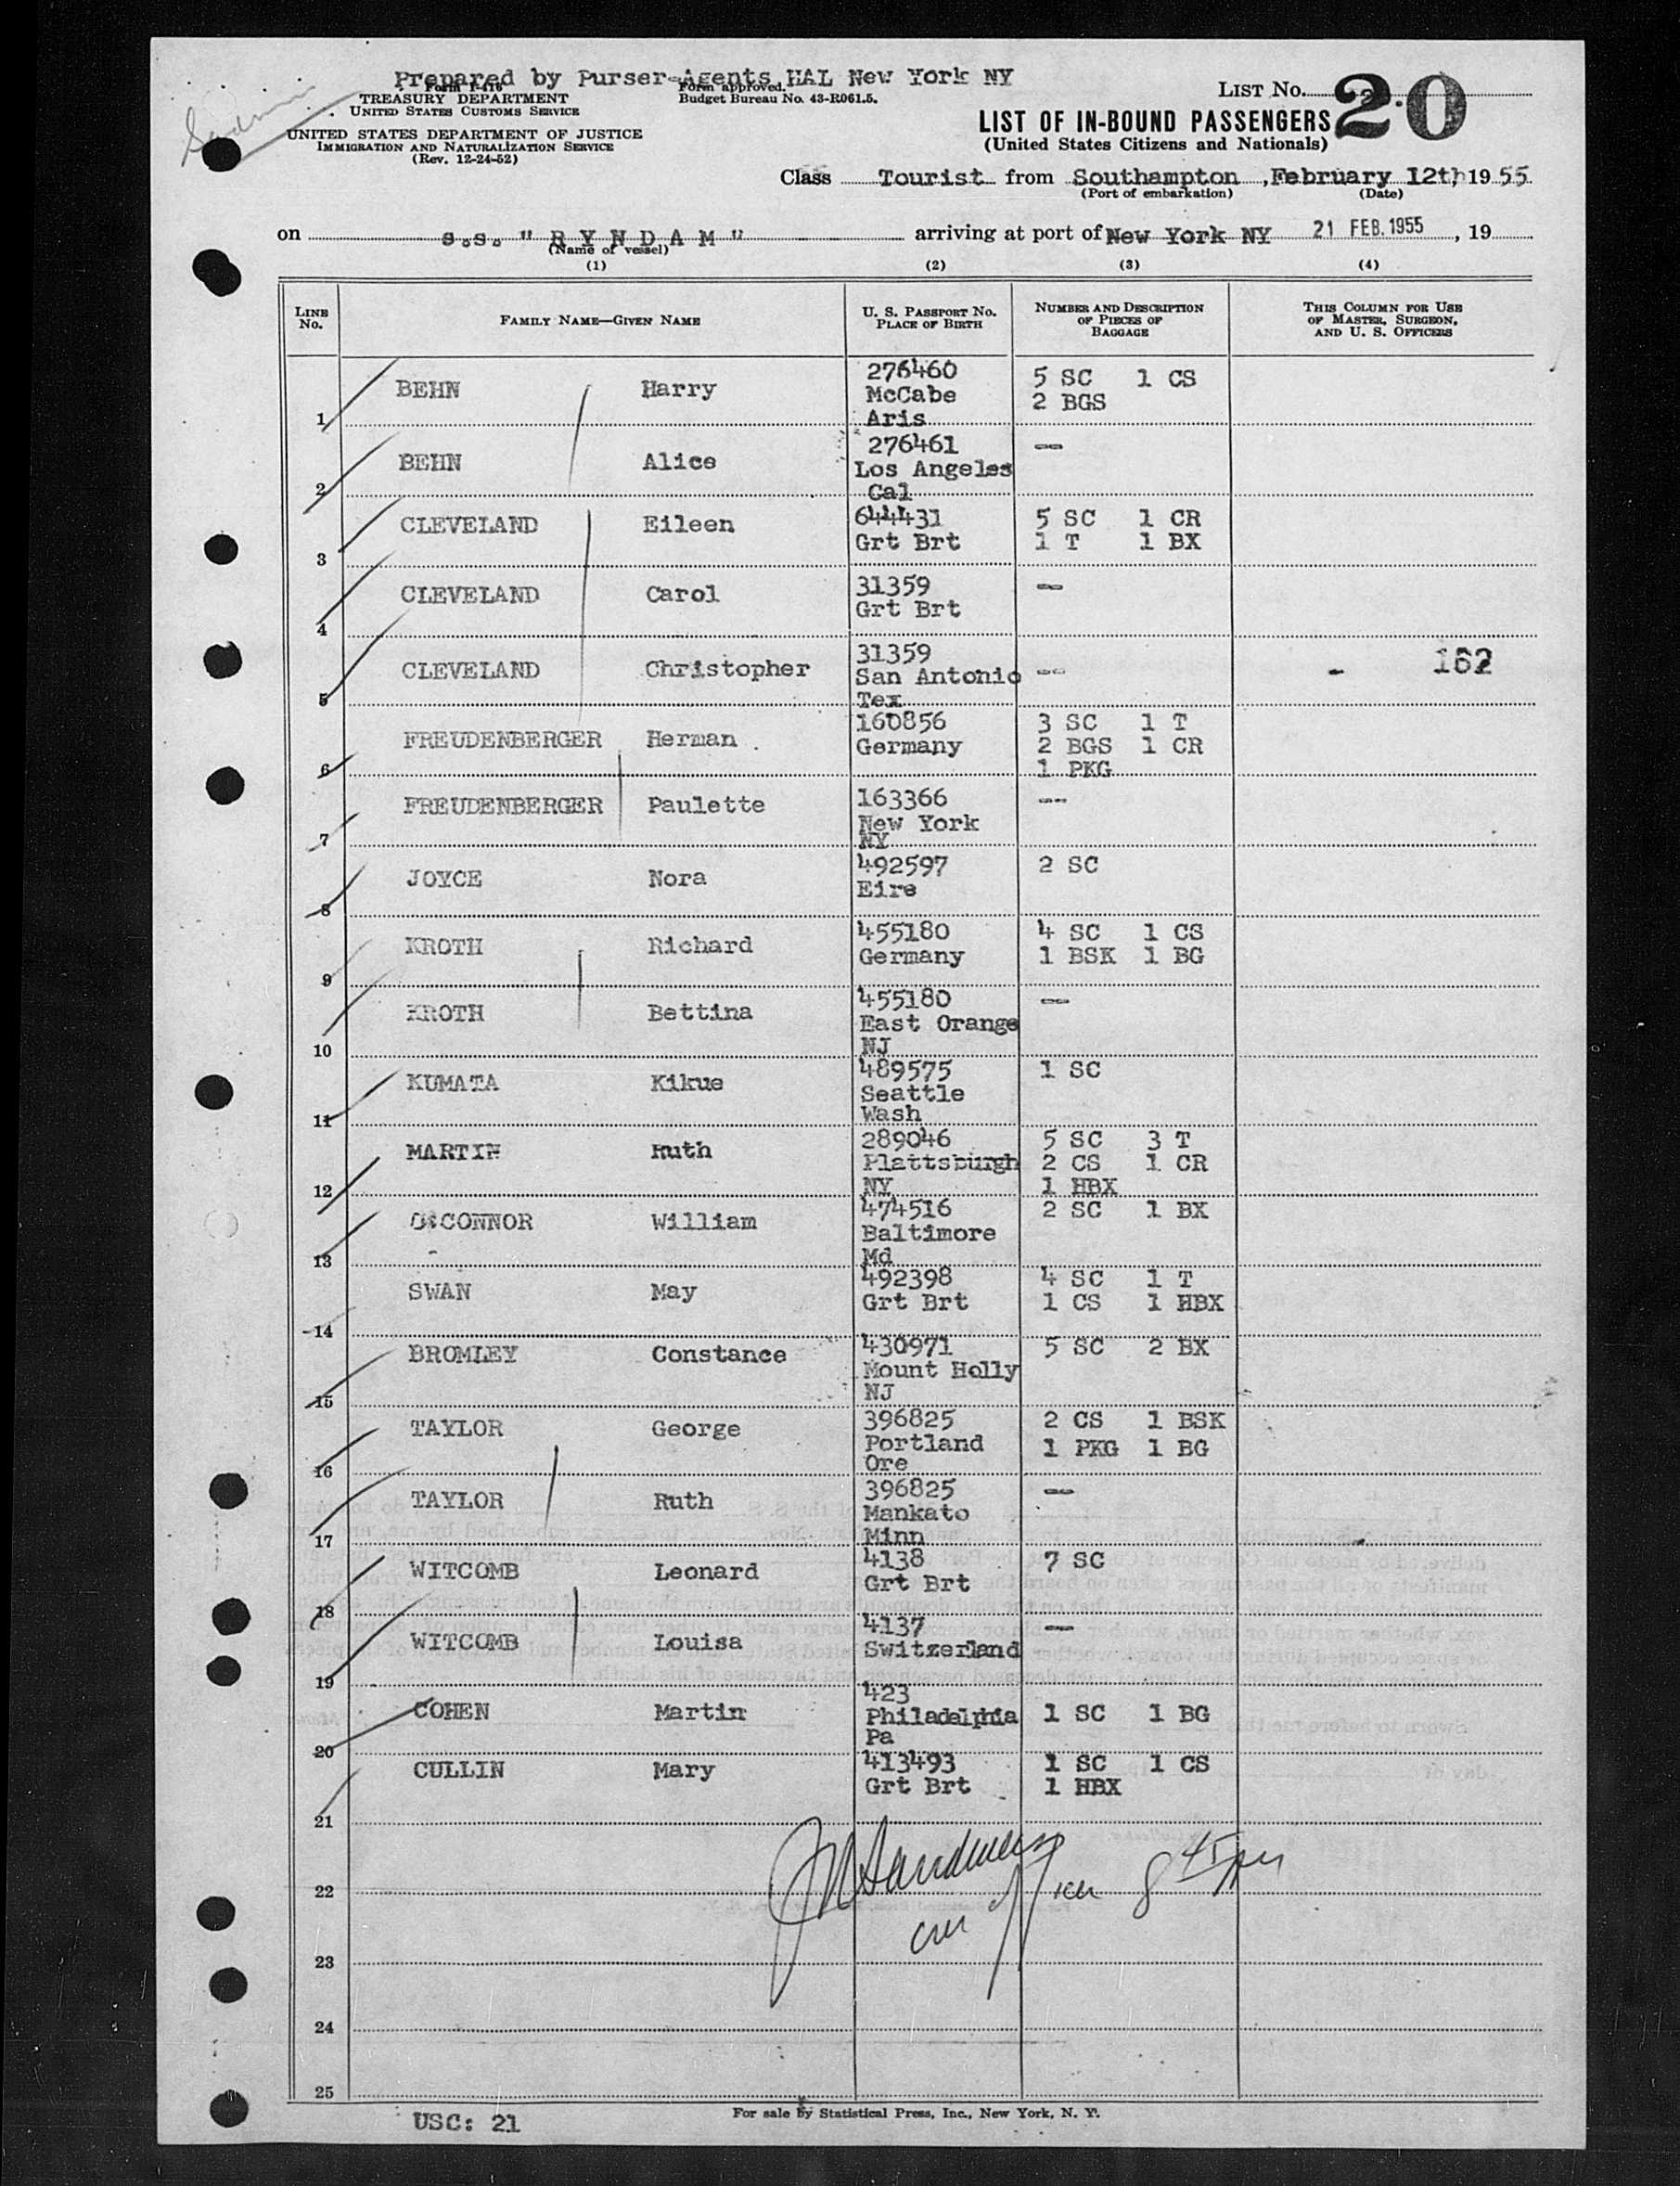 Prepared by Purser-Agents HAL New York NY
Form I-416
TREASURY DEPARTMENT
UNITED STATES CUSTOMS SERVICE
UNITED STATES DEPARTMENT OF JUSTICE
IMMIGRATION AND NATURALIZATION SERVICE
(Rev. 12-24-52)
Form approved.
Budget Bureau No. 43-R061.5.
LIST No. 20
LIST OF IN-BOUND PASSENGERS
(United States Citizens and Nationals)
Class Tourist from Southampton , February 12th, 1955
(Port of embarkation) (Date)
on s.s. "RYNDAM" arriving at port of New York NY 21 FEB. 1955 , 19
(Name of vessel)
(1) (2) (3) (4)
LINE No. FAMILY NAME—GIVEN NAME U. S. PASSPORT NO. PLACE OF BIRTH NUMBER AND DESCRIPTION OF PIECES OF BAGGAGE THIS COLUMN FOR USE OF MASTER, SURGEON, AND U. S. OFFICERS
1 BEHN Harry 276460 McCabe Aris 5 SC 1 CS 2 BGS
2 BEHN Alice 276461 Los Angeles Cal --
3 CLEVELAND Eileen 644431 Grt Brt 5 SC 1 CR 1 T 1 BX
4 CLEVELAND Carol 31359 Grt Brt --
5 CLEVELAND Christopher 31359 San Antonio Tex -- - 162
6 FREUDENBERGER Herman 160856 Germany 3 SC 1 T 2 BGS 1 CR 1 PKG
7 FREUDENBERGER Paulette 163366 New York NY --
8 JOYCE Nora 492597 Eire 2 SC
9 KROTH Richard 455180 Germany 4 SC 1 CS 1 BSK 1 BG
10 KROTH Bettina 455180 East Orange NJ --
11 KUMATA Kikue 489575 Seattle Wash 1 SC
12 MARTIN Ruth 289046 Plattsburgh NY 5 SC 3 T 2 CS 1 CR 1 HBX
13 O'CONNOR William 474516 Baltimore Md 2 SC 1 BX
14 SWAN May 492398 Grt Brt 4 SC 1 T 1 CS 1 HBX
15 BROMLEY Constance 430971 Mount Holly NJ 5 SC 2 BX
16 TAYLOR George 396825 Portland Ore 2 CS 1 BSK 1 PKG 1 BG
17 TAYLOR Ruth 396825 Mankato Minn --
18 WITCOMB Leonard 4138 Grt Brt 7 SC
19 WITCOMB Louisa 4137 Switzerland --
20 COHEN Martin 423 Philadelphia Pa 1 SC 1 BG
21 CULLIN Mary 413493 Grt Brt 1 SC 1 CS 1 HBX
22
23
24
25
8 45 pm
USC: 21
For sale by Statistical Press, Inc., New York, N. Y.